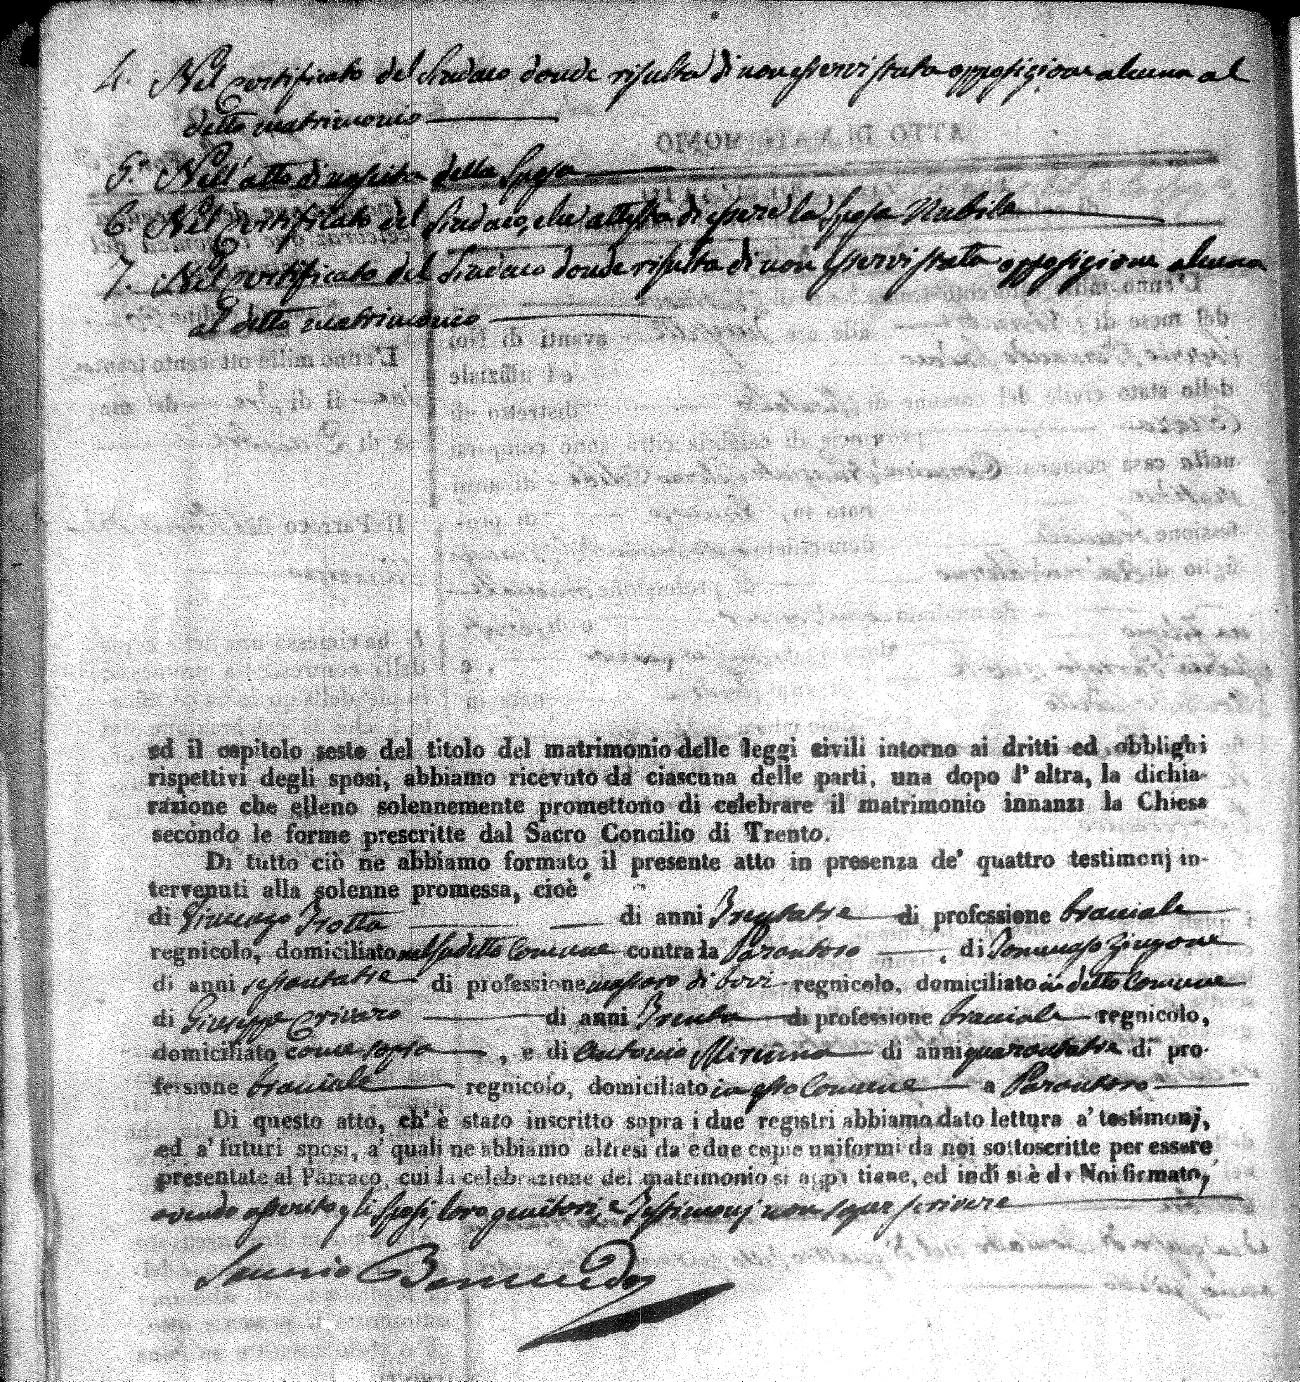 4. Nel certificato del Sindaco donde risulta di non esservi stata opposizione alcuna al
detto matrimonio
5.° Nell'atto di nascita della Sposa
6. Nel certificato del Sindaco, che attesta di essere la Sposa Nubile
7. Nel certificato del Sindaco donde risulta di non esservi stata opposizione alcuna
al detto matrimonio
ed il capitolo sesto del titolo del matrimonio delle leggi civili intorno ai dritti ed obblighi
rispettivi degli sposi, abbiamo ricevuto da ciascuna delle parti, una dopo l'altra, la dichia-
razione che elleno solennemente promettono di celebrare il matrimonio innanzi la Chiesa
secondo le forme prescritte dal Sacro Concilio di Trento.
Di tutto ciò ne abbiamo formato il presente atto in presenza de' quattro testimonj in-
tervenuti alla solenne promessa, cioè
di Trotta di anni Trentatre di professione bracciale
regnicolo, domiciliato nel sudetto Comune contrada Parantoro, di Tommaso Zingone
di anni sessantatre di professione massaro di bovi regnicolo, domiciliato in detto Comune
di Giuseppe Crivaro di anni Trenta di professione bracciale regnicolo,
domiciliato come sopra, e di Antonio di anni quarantatre di pro-
fessione bracciale regnicolo, domiciliato in esso Comune a Parantoro
Di questo atto, ch'è stato inscritto sopra i due registri abbiamo dato lettura a' testimonj,
ed a' futuri sposi, a' quali ne abbiamo altresì date due copie uniformi da noi sottoscritte per essere
presentate al Parraco, cui la celebrazione del matrimonio si appartiene, ed indi si è da Noi firmato,
avendo asserito gli Sposi, loro genitori, e Testimonj non saper scrivere